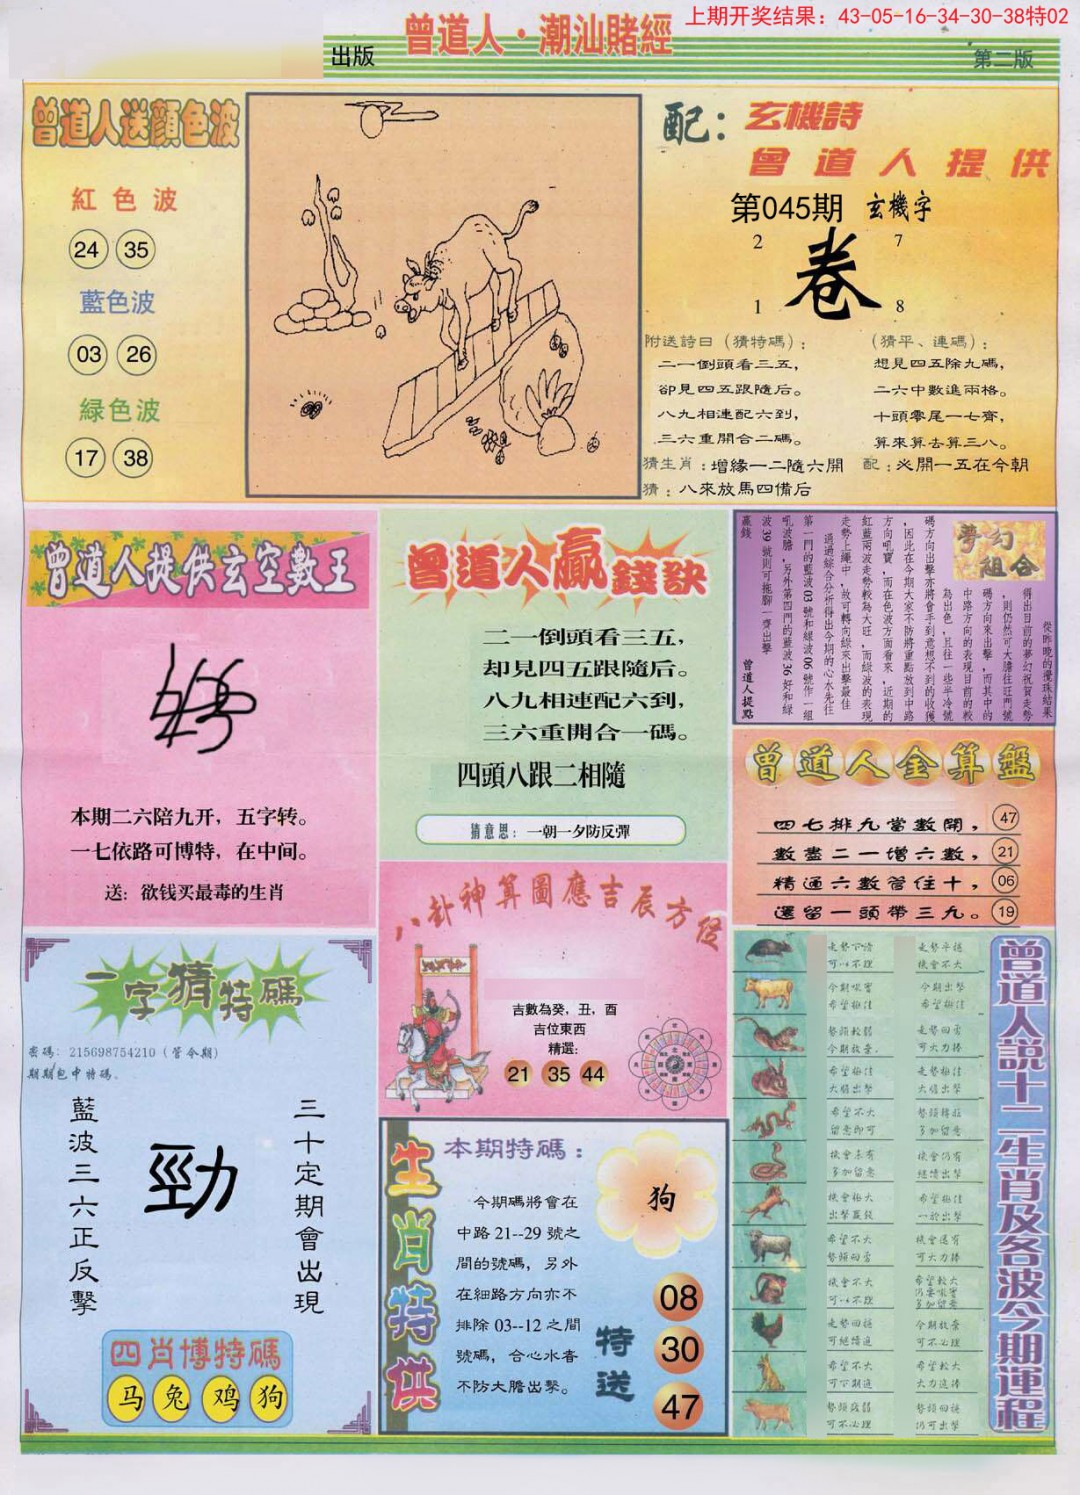 上期开奖结果：43-05-16-34-30-38特02
出版
曾道人·潮汕賭經
第二版
曾道人送顏色波
紅色波
24 35
藍色波
03 26
緑色波
17 38
配：玄機詩
曾道人提供
第045期 玄機字
2 7
卷
1 8
附送詩曰（猜特碼）：
二一倒頭看三五，
卻見四五跟隨后。
八九相連配六到，
三六重開合二碼。
（猜平、連碼）：
想見四五除九碼，
二六中數進兩格。
十頭零尾一七齊，
算來算去算三八。
猜生肖：增緣一二隨六開
配：必開一五在今朝
猜：八來放馬四備后
曾道人提供玄空數王
本期二六陪九开，五字转。
一七依路可博特，在中间。
送：欲钱买最毒的生肖
曾道人贏錢訣
二一倒頭看三五，
却見四五跟隨后。
八九相連配六到，
三六重開合一碼。
四頭八跟二相隨
猜意思：一朝一夕防反彈
夢幻組合
從昨晚的攪珠結果
得出目前的夢幻祝賀走勢
，則仍然可大膽往旺門號
碼方向來出擊，而其中的
中路方向的表現目前的較
為出色，且往一些半冷號
碼方向出擊亦將會手到意想不到的收獲
，因此在今期大家不防將重點放到中路
方向吼寶，而在色波方面看來，近期的
紅藍兩波走勢較為大旺，而綠波的表現
走勢上繩中，故可轉向綠來出擊最佳
通過綜合分析得出今期的心水先往
第一門的藍波03號和綠波06號作一組
吼波膽，另外第四門的藍波36好和綠
波39號則可拖腳一齊出擊
贏錢
曾道人提點
曾道人金算盤
四七排九當數開，47
數盡二一增六數，21
精通六數管住十，06
還留一頭帶三九。19
八卦神算圖應吉辰方位
吉數為癸，丑，酉
吉位東西
精選：
21 35 44
一字猜特碼
密碼：215698754210（管令期）
期期包中特碼。
藍波三六正反擊
勁
三十定期會出現
四肖博特碼
马 兔 鸡 狗
生肖特供
本期特碼：
今期碼將會在
中路21--29號之
間的號碼，另外
在細路方向亦不
排除03--12之間
號碼，合心水者
不防大膽出擊。
狗
特送
08
30
47
曾道人說十二生肖及各波今期運程